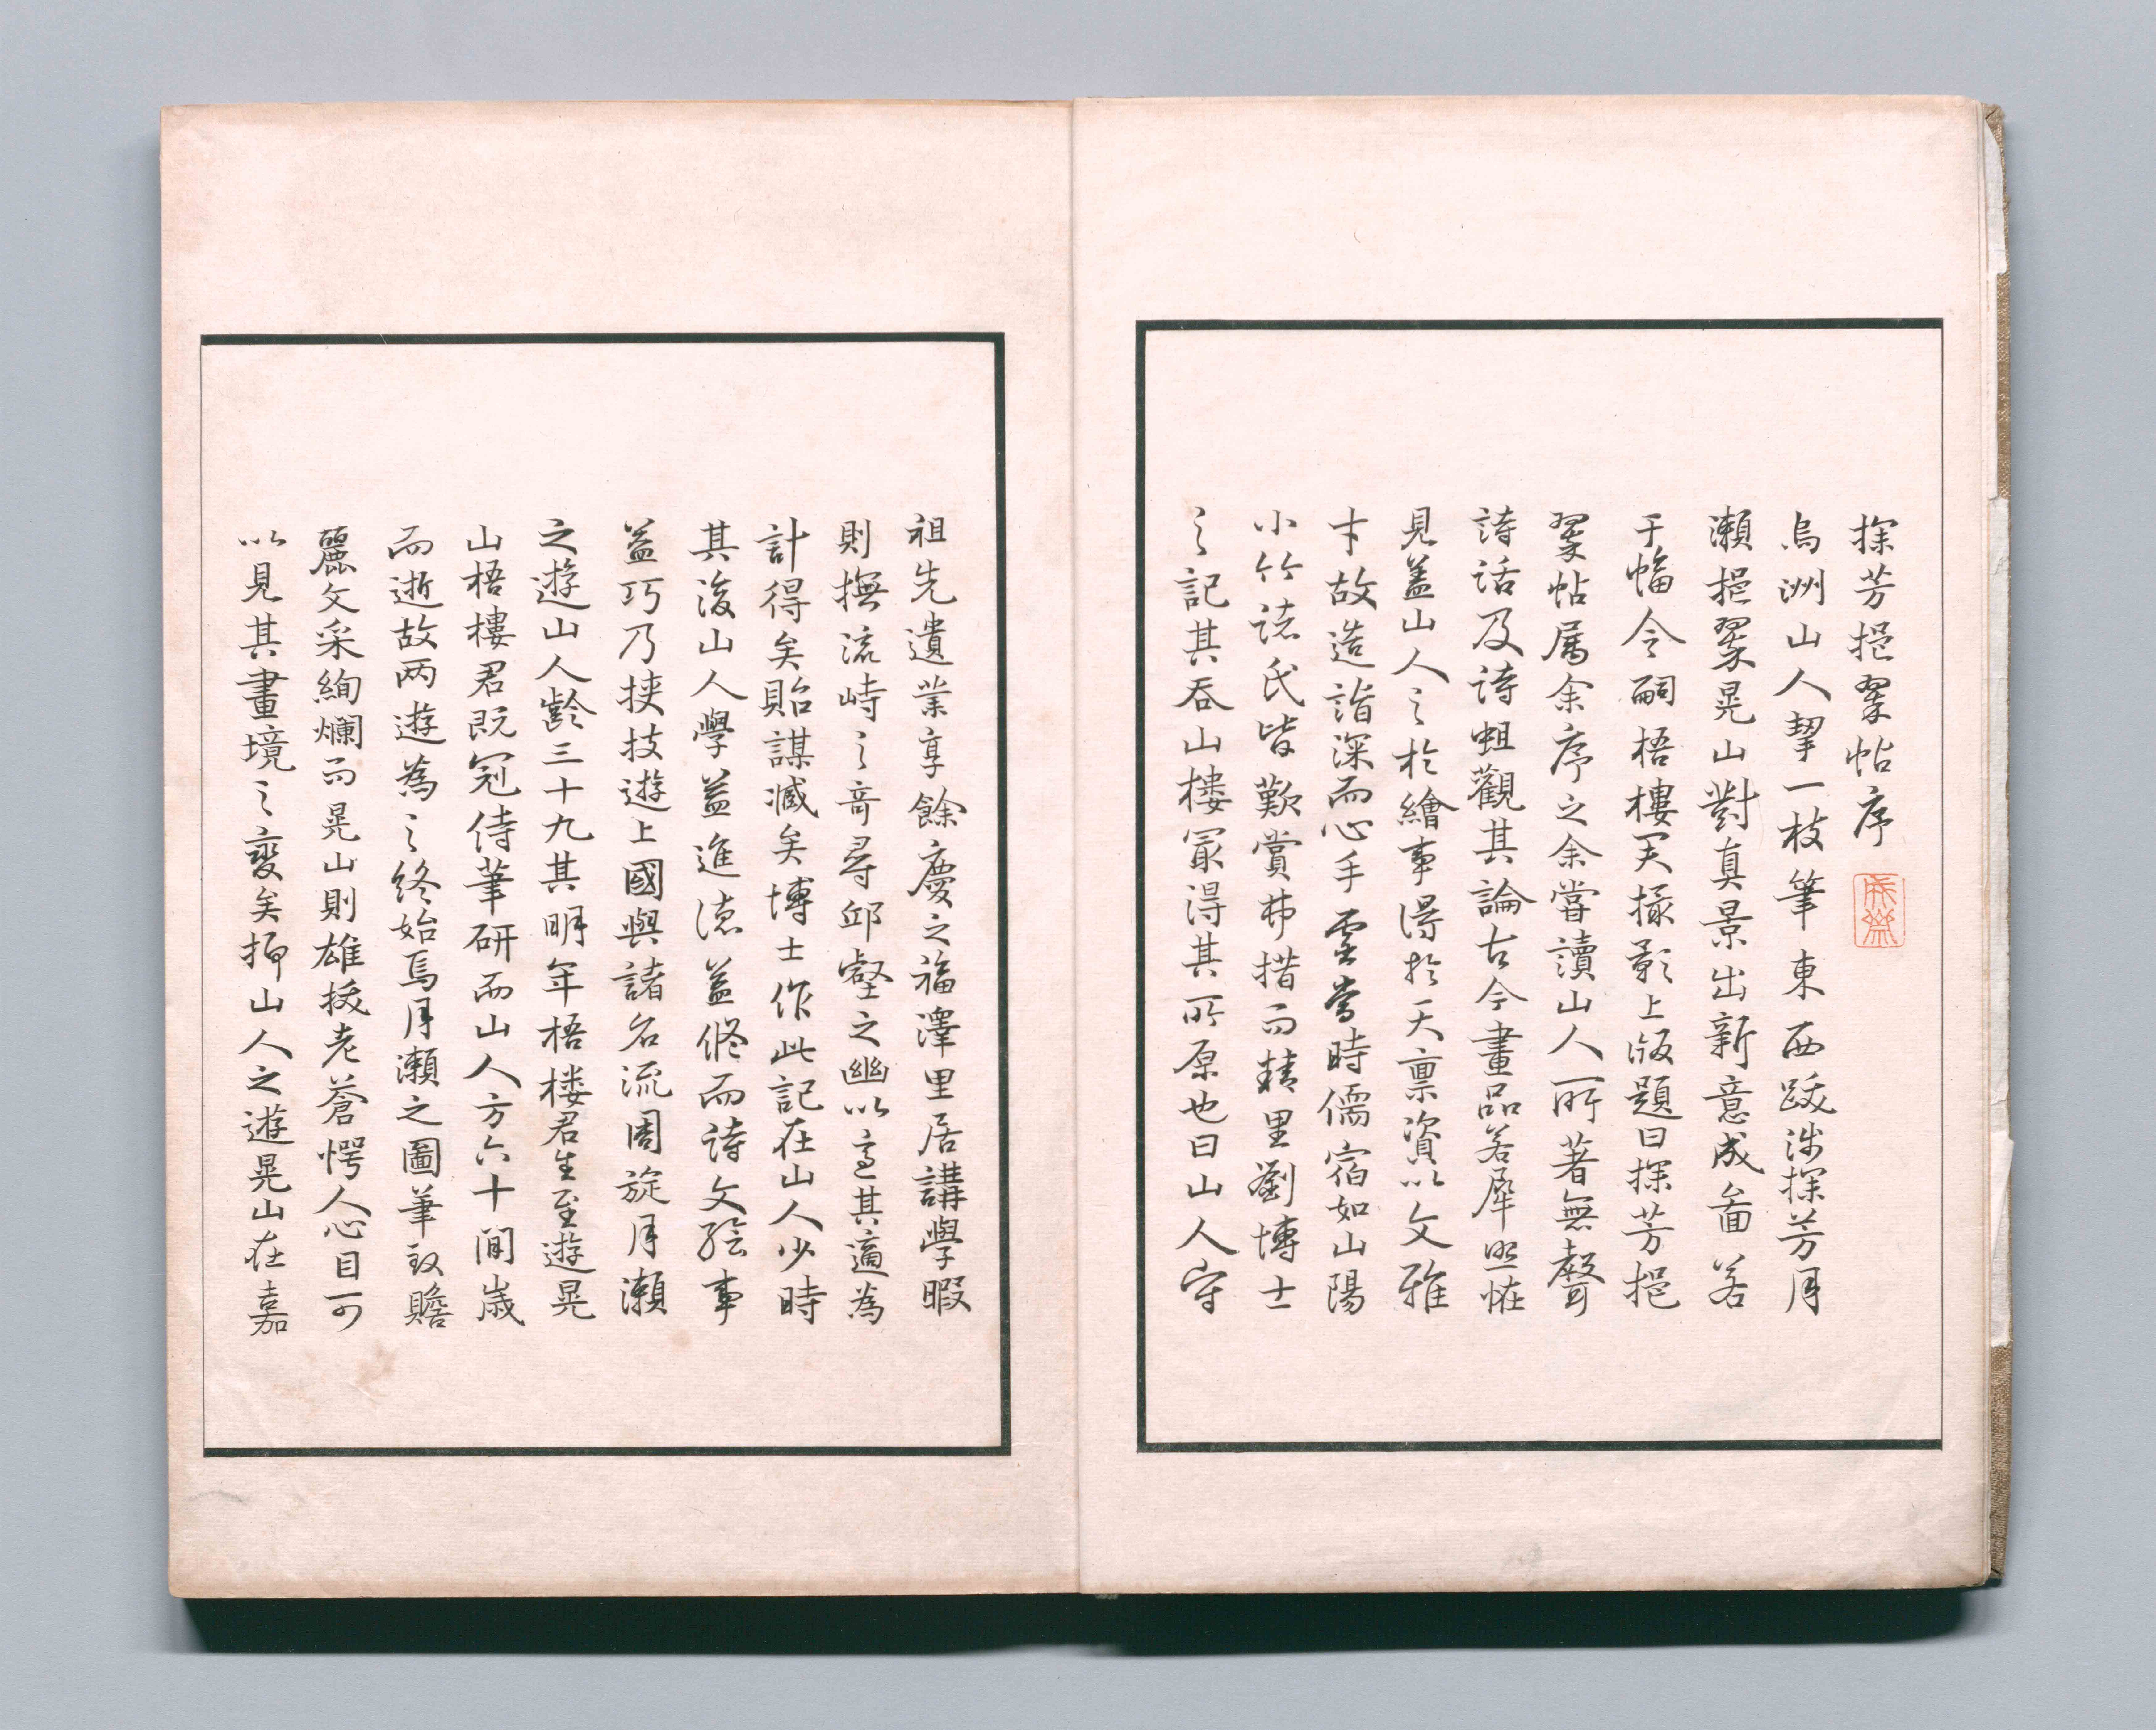 探芳挹翠帖序
烏洲山人挈一枝筆東西跋涉探芳月
瀨挹翠晃山對真景出新意成畵若
干幅令嗣梧樓君撮影上版題曰探芳挹
翠帖属余序之余嘗讀山人所著無聲
詩話及詩蛆觀其論古今畫品若犀照恠
見蓋山人之於繪事得於天禀資以文雅
才故造詣深而心手靈當時儒宿如山陽
小竹諸氏皆歎賞弗措而精里劉博士
之記其吞山樓冣得其所原也曰山人守
祖先遺業享餘慶之福澤里居講學暇
則撫流峙之奇尋邱壑之幽以高其適為
計得矣貽謀臧矣博士作此記在山人少時
其後山人學益進徳益修而詩文繪事
益巧乃挾技遊上國與諸名流周旋月瀨
之遊山人齡三十九其明年梧楼君生至遊晃
山梧樓君既冠侍筆研而山人方六十閒歳
而逝故两遊為之終始焉月瀨之圖筆致贍
麗文采絢爛而晃山則雄拔老蒼愕人心目可
以見其畫境之變矣抑山人之遊晃山在嘉